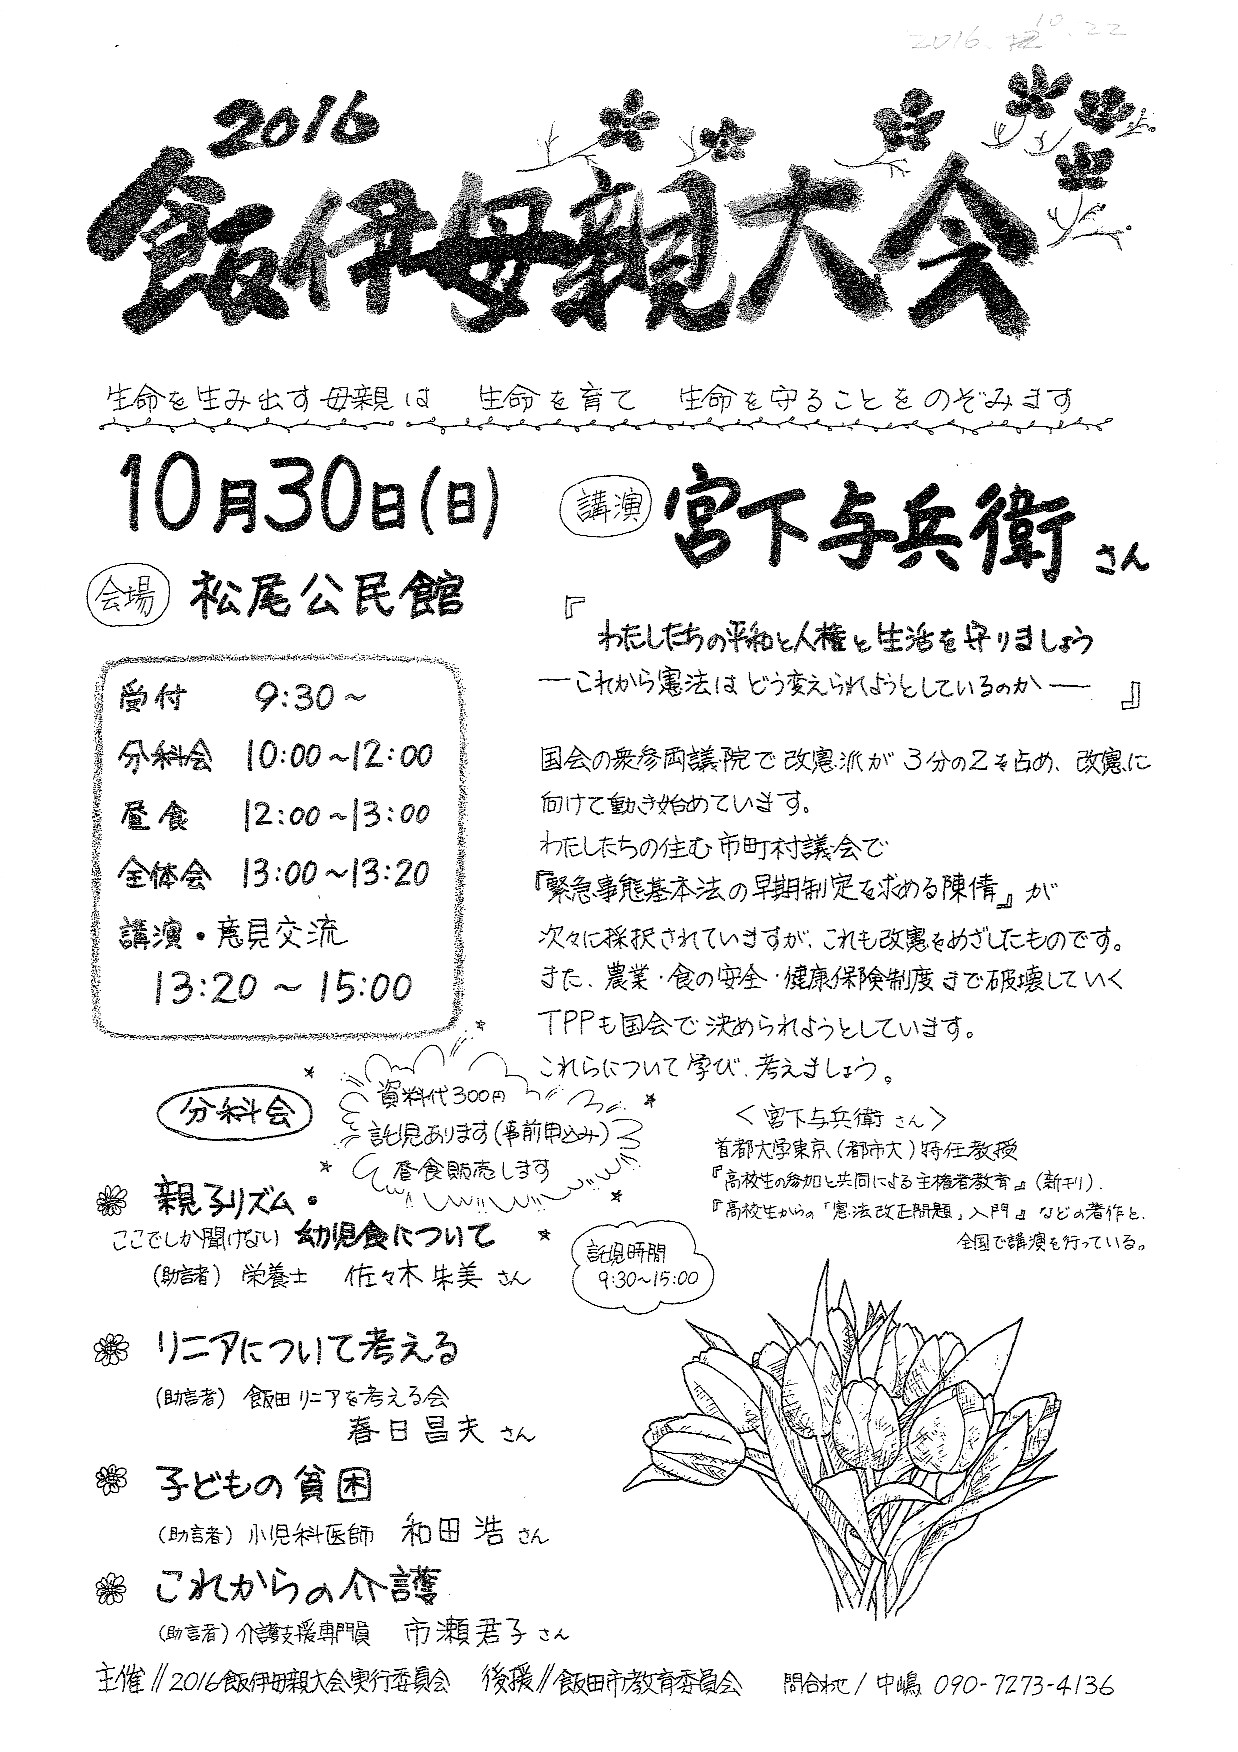 2016.10.22
2016
飯伊母親大会
生命を生み出す母親は 生命を育て 生命を守ることをのぞみます
10月30日(日)
会場 松尾公民館
受付 9:30～
分科会 10:00～12:00
昼食 12:00～13:00
全体会 13:00～13:20
講演・意見交流
13:20～15:00
講演 宮下与兵衛さん
『わたしたちの平和と人権と生活を守りましょう
―これから憲法はどう変えられようとしているのか―』
国会の衆参両議院で改憲派が3分の2を占め、改憲に
向けて動き始めています。
わたしたちの住む市町村議会で
『緊急事態基本法の早期制定を求める陳情』が
次々に採択されていますが、これも改憲をめざしたものです。
また、農業・食の安全・健康保険制度まで破壊していく
TPPも国会で決められようとしています。
これらについて学び、考えましょう。
<宮下与兵衛さん>
首都大学東京(都市大)特任教授
『高校生の参加と共同による主権者教育』(新刊)、
『高校生からの「憲法改正問題」入門』などの著作と、
全国で講演を行っている。
資料代300円
託児あります(事前申込み)
昼食販売します
託児時間
9:30～15:00
分科会
親子リズム・
ここでしか聞けない 幼児食について
(助言者) 栄養士 佐々木朱美さん
リニアについて考える
(助言者) 飯田リニアを考える会
春日昌夫さん
子どもの貧困
(助言者) 小児科医師 和田浩さん
これからの介護
(助言者) 介護支援専門員 市瀬君子さん
主催//2016飯伊母親大会実行委員会 後援//飯田市教育委員会 問合わせ/中嶋 090-7273-4136